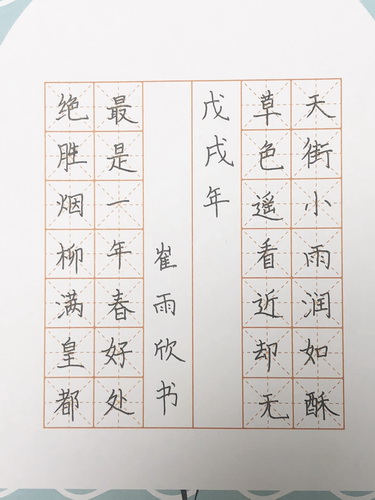 天街小雨润如酥
草色遥看近却无
戊戌年
崔雨欣书
最是一年春好处
绝胜烟柳满皇都